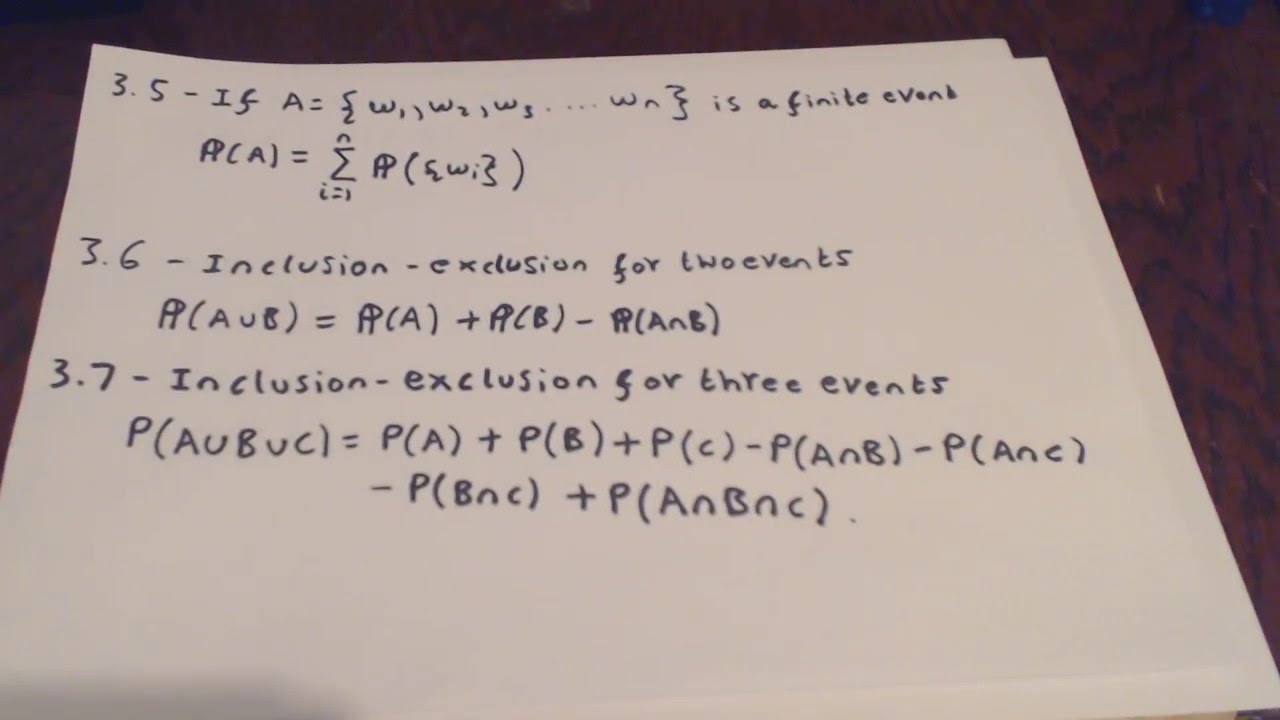 3.5 - If A = {ω₁, ω₂, ω₃ .... ωₙ} is a finite event
ℙ(A) = ∑ⁿᵢ₌₁ ℙ({ωᵢ})
3.6 - Inclusion-exclusion for two events
ℙ(A∪B) = ℙ(A) + ℙ(B) - ℙ(A∩B)
3.7 - Inclusion-exclusion for three events
P(A∪B∪C) = P(A) + P(B) + P(C) - P(A∩B) - P(A∩C)
- P(B∩C) + P(A∩B∩C).